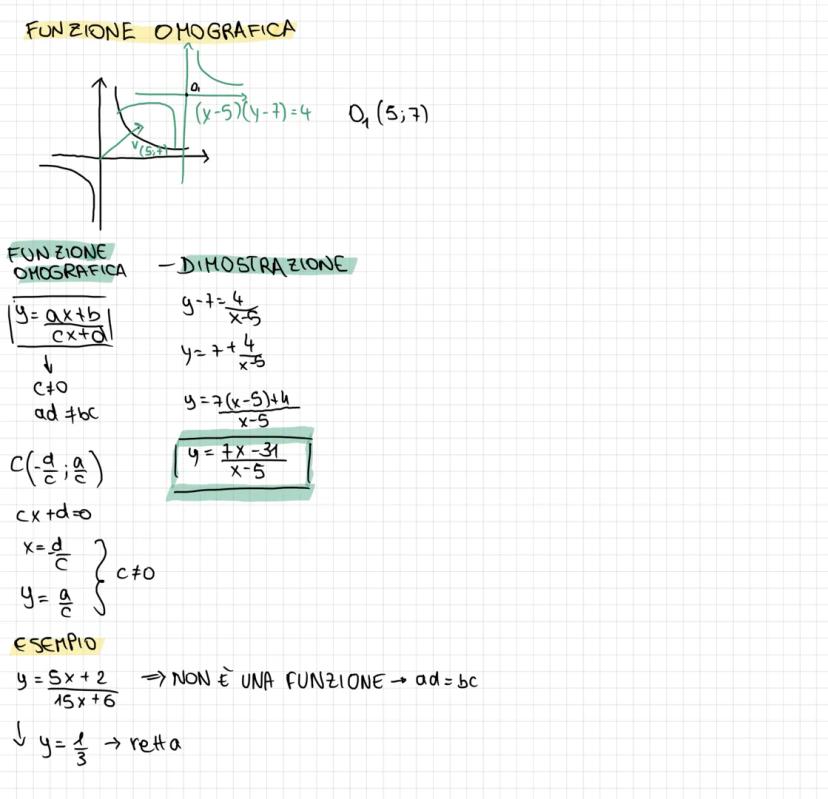 FUNZIONE OMOGRAFICA
O₁
(x-5)(y-7)=4
O₁(5;7)
v(5;7)
FUNZIONE
OMOGRAFICA
- DIMOSTRAZIONE
y = (ax+b)/(cx+d)
↓
c≠0
ad ≠bc
C(-d/c ; a/c)
cx+d=0
x= d/c
y= a/c
} c≠0
y-7= 4/(x-5)
y= 7+ 4/(x-5)
y= (7(x-5)+4)/(x-5)
y = (7x-31)/(x-5)
ESEMPIO
y = (5x+2)/(15x+6) ⇒ NON È UNA FUNZIONE → ad=bc
↓ y= 1/3 → retta